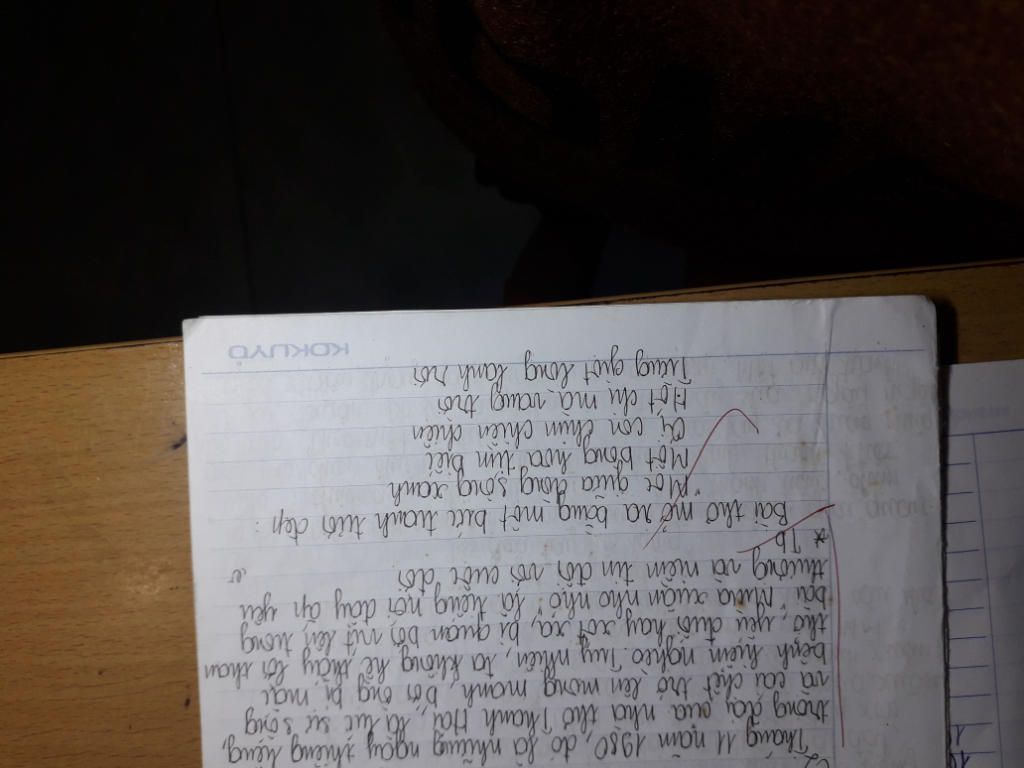 Tháng 11 năm 1980, đó là những ngày thiêng liêng,
của nhà thơ Thanh Hải, là lúc sự sống
và cái chết trở lên mong manh, bởi ông bị mắc
bệnh hiểm nghèo. Tuy nhiên, ta không hề thấy lời than
thở, yếu đuối hay xót xa, bi quan bởi lên trong
bài. Mùa xuân nho nhỏ: là tiếng nói đầy ắp yêu
thương và niềm tin đối với cuộc đời
* Tb
Bài thơ mở ra bằng một bức tranh tươi đẹp:
Mọc giữa dòng sông xanh
Một bông hoa tím biếc
Ơi con chim chiền chiện
Hót chi mà vang trời
Từng giọt long lanh rơi
KOKUYO